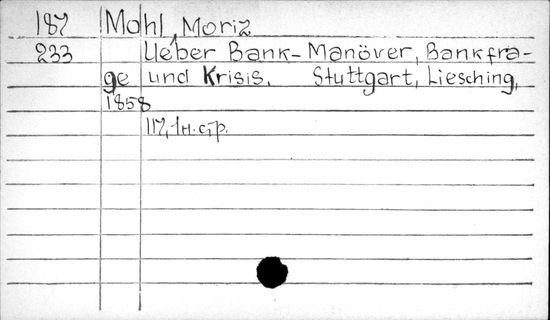 187 Mohl, Moriz
233 Ueber Bank-Manöver, Bankfra-
ge und Krisis. Stuttgart, Liesching,
1858
117, 1 н. стр.